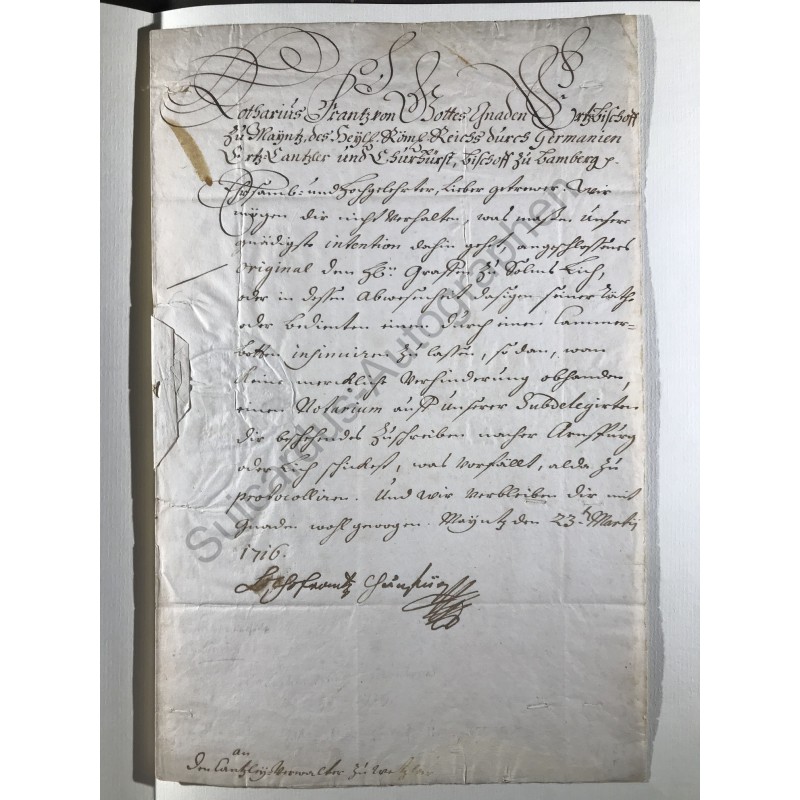 Lotharius Frantz von Gottes Gnaden Ertzbischoff
zu Mayntz, des Heyl. Röml. Reichs durch Germanien
Ertz-Cantzler und Churfürst, Bischoff zu Bamberg p.
Ehrsamb- und Hochgelehrter, Lieber getrewer. Wir
mögen dir nicht Verhalten, was maßen Unsere
gnädigste intention dahin gehet, angeschlossenes
original dem Hn. Graffen zu Solms Lich,
oder in dessen Abwesenheit dasigen seiner Räth
oder bedienten einem durch einen Cammer-
botten insinuiren zu lassen, so dan, wan
keine merckliche Verhinderung obhanden,
einen Notarium auff Unserer Subdelegirten
dir beschehendes Zuschreiben nacher Arnspurg
oder Lich schickest, was Vorfällt, alda zu
protocolliren. Und wir Verbleiben dir mit
Gnaden wohl gewogen. Mayntz den 23t. Martij
1716.
Loth Frantz Churfürst
an
den Cantzley Verwalter zu Wetzlar
Sulcardus-Autographen